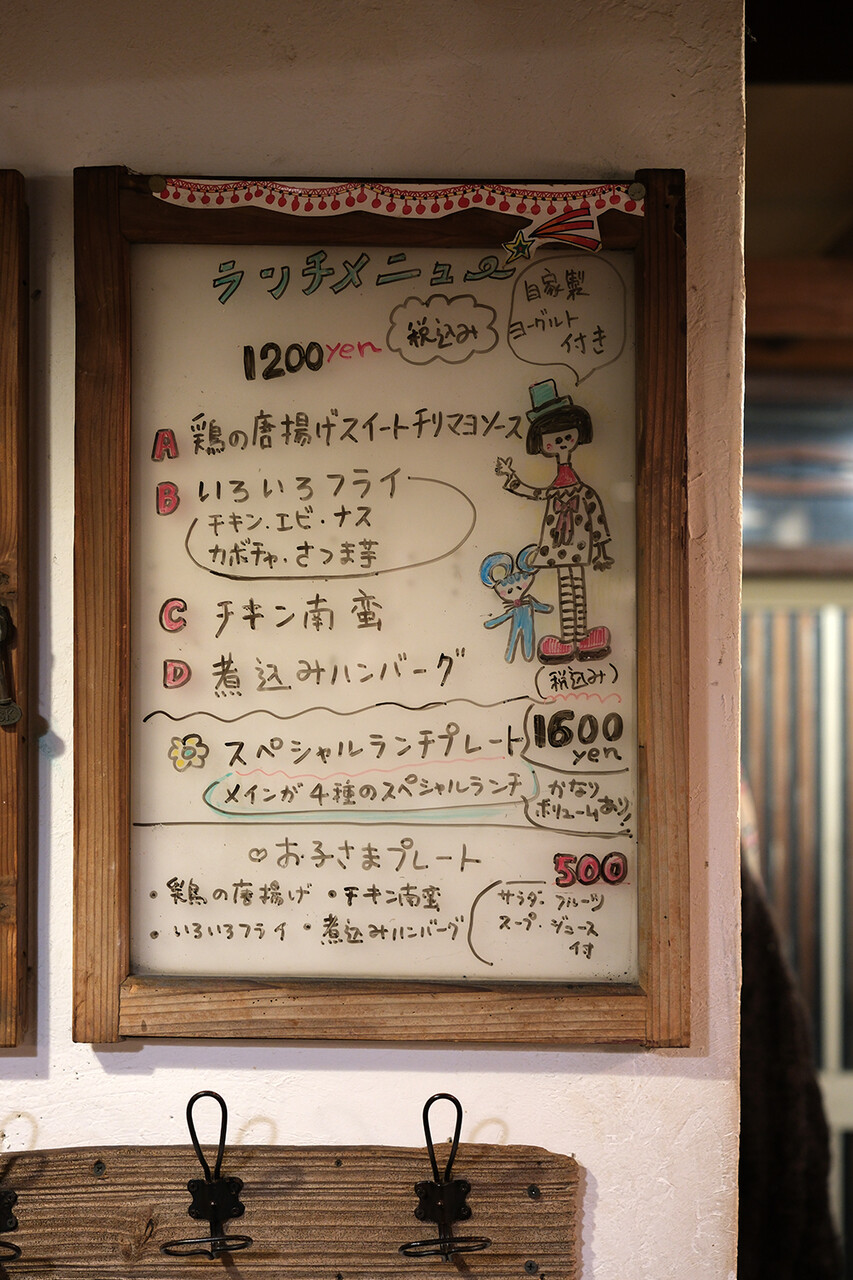 ランチメニュー
自家製
ヨーグルト
付き
1200yen 税込み
A 鶏の唐揚げスイートチリマヨソース
B いろいろフライ
チキン.エビ・ナス
カボチャ.さつま芋
C チキン南蛮
D 煮込みハンバーグ
(税込み)
スペシャルランチプレート 1600
yen
メインが4種のスペシャルランチ
かなり
ボリュームあり!
♡お子さまプレート 500
・鶏の唐揚げ ・チキン南蛮
・いろいろフライ ・煮込みハンバーグ
サラダ.フルーツ
スープ・ジュース
付